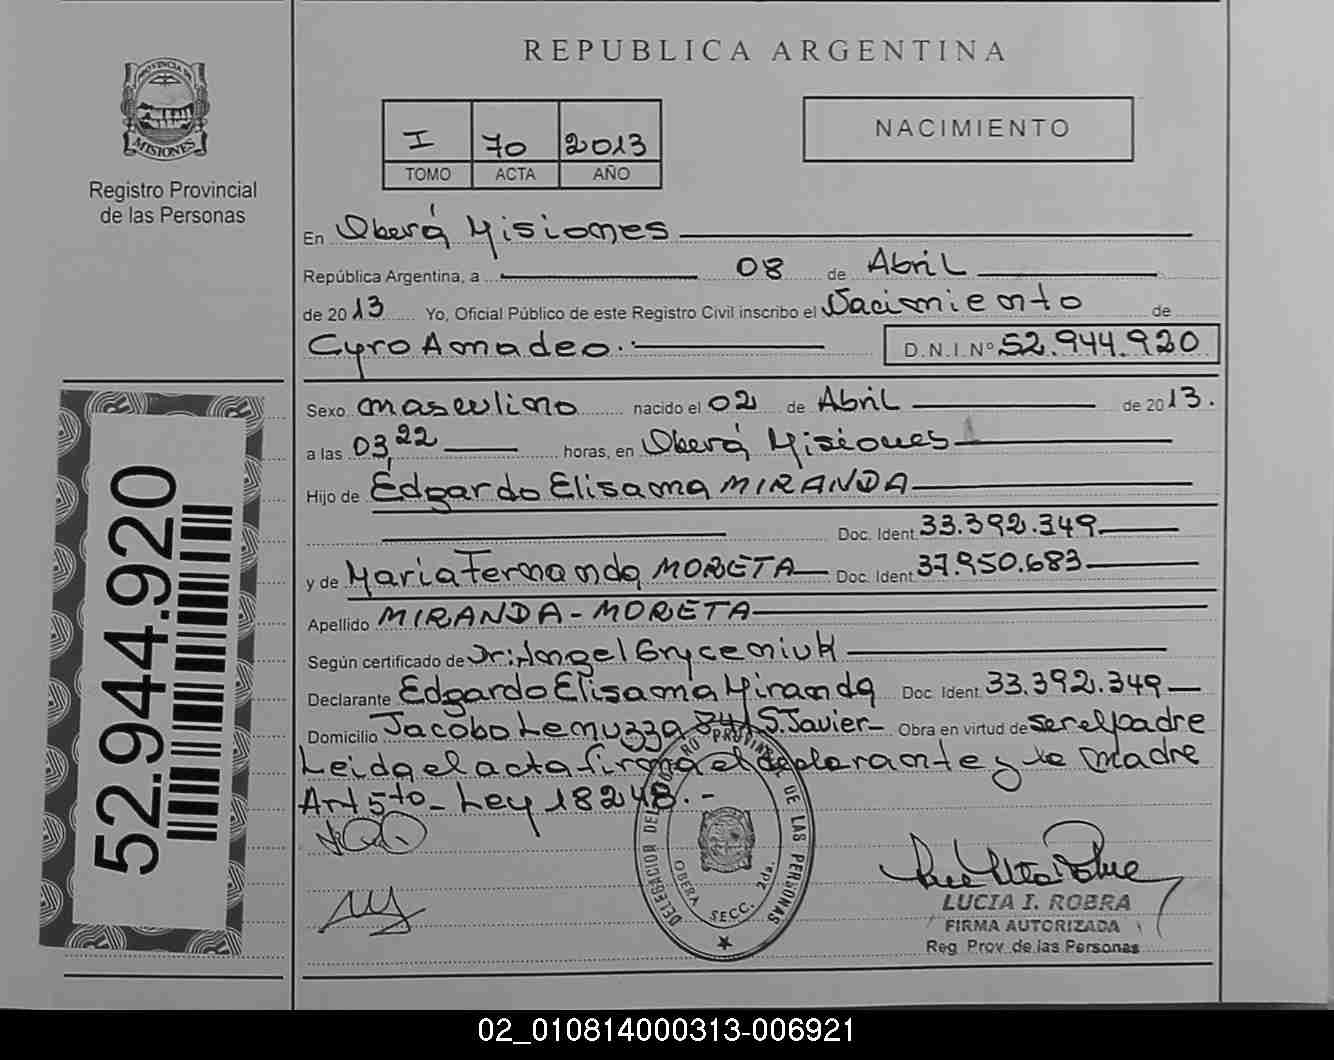 REPUBLICA ARGENTINA
PROVINCIA DE
MISIONES
Registro Provincial
de las Personas
I 70 2013
TOMO ACTA AÑO
NACIMIENTO
En Oberá Misiones
República Argentina, a 08 de Abril
de 2013 Yo, Oficial Público de este Registro Civil inscribo el Nacimiento de
Cyro Amadeo.- D.N.I.Nº 52.944.920
Sexo masculino nacido el 02 de Abril de 2013.
a las 03,22 horas, en Oberá Misiones
Hijo de Edgardo Elisama MIRANDA
Doc. Ident. 33.392.349
y de Maria Fernanda MORETA Doc. Ident. 37.950.683
Apellido MIRANDA - MORETA
Según certificado de Dr: Angel Gryceniuk
Declarante Edgardo Elisama Miranda Doc. Ident. 33.392.349
Domicilio Jacobo Lemuzza S. Javier- Obra en virtud de ser el padre
Leida el acta firma el declarante y la madre
Art 5to- Ley 18248.-
52.944.920
DELEGACION DEL REGISTRO PROVINCIAL DE LAS PERSONAS
OBERA SECC. 2da.
LUCIA I. ROBRA
FIRMA AUTORIZADA
Reg Prov. de las Personas
02_010814000313-006921